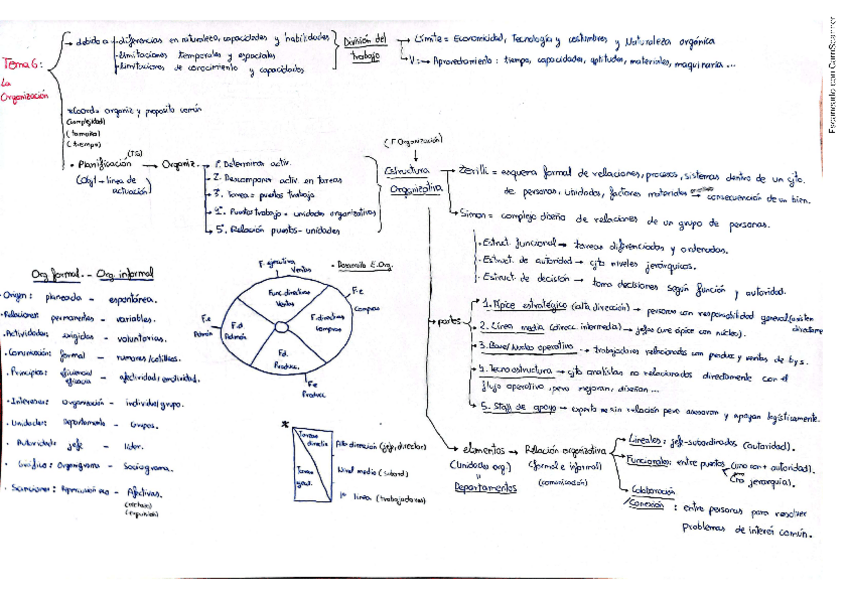 Tema 6:
La
Organización
debido a
- diferencias en naturaleza, capacidades y habilidades
- Limitaciones temporales y espaciales
- Limitaciones de conocimiento y capacidades
División del
trabajo
Límite = Economicidad, Tecnología y costumbres y Naturaleza orgánica
V: → Aprovechamiento: tiempo, capacidades, aptitudes, materiales, maquinaria ...
*Coord. organiz y proposito común
(complejidad)
(tamaño)
(tiempo)
• Planificación → Organiz.
(obj - linea de
actuación)
1. Determinar activ.
2. Descomponer activ en tareas
3. Tareas = puestos trabajo
4. Puestos trabajo = unidades organizativas
5. Relación puestos - unidades
(F Organización)
Estructura
Organizativa
Zerilli = esquema formal de relaciones, procesos, sistemas dentro de un cjto.
de personas, unidades, factores materiales → consecuencia de un bien.
Simon = complejo diseño de relaciones de un grupo de personas.
- Estruct. funcional → tareas diferenciadas y ordenadas.
- Estruct. de autoridad → cjto niveles jerárquicos.
- Estruct. de decisión → toma decisiones según función y autoridad.
partes
1. Ápice estratégico (alta dirección) → personas con responsabilidad general
2. Línea media (direcc. intermedia) → jefes (une ápice con núcleo).
3. Base/Núcleo operativo → trabajadores relacionados con produc y ventas de b y s.
4. Tecnoestructura → cjto analistas no relacionados directamente con el
flujo operativo, pero mejoran, diseñan ...
5. Staff de apoyo → experto sin relación pero asesoran y apoyan logísticamente.
elementos → Relación organizativa
(Unidades org.)
Departamentos
(formal e informal)
(comunicación)
Lineales: jefe-subordinados (autoridad).
Funcionales: entre puestos
jerarquía).
Colaboración
/Conexión: entre personas para resolver
problemas de interés común.
Org formal - Org. informal
- Origen: planeada - espontánea.
- Relaciones: permanentes - variables.
- Actividades: exigidas - voluntarias.
- Comunicación: formal - rumores/cotilleos.
- Principios: eficiencia/eficacia - afectividad/emotividad.
- Intereses: Organización - individual/grupo.
- Unidades: Departamento - Grupos.
- Autoridad: jefe - líder.
- Gráfico: Organigrama - Sociograma.
- Sanciones: - Afectivas.
(rechazo)
(expulsión)
F. ejecutiva
Ventas
• Desarrollo E. Org.
Func. directivas
Ventas
F.e
Compras
F. directivas
compras
F.e
Admón
F.d
Admón.
F.d.
Produc.
F.e
Produc.
*
Tareas
directiv.
Tareas
Alta dirección (jefe, director)
Nivel medio (subord)
1ª linea (trabajadores)
Escaneado con CamScanner